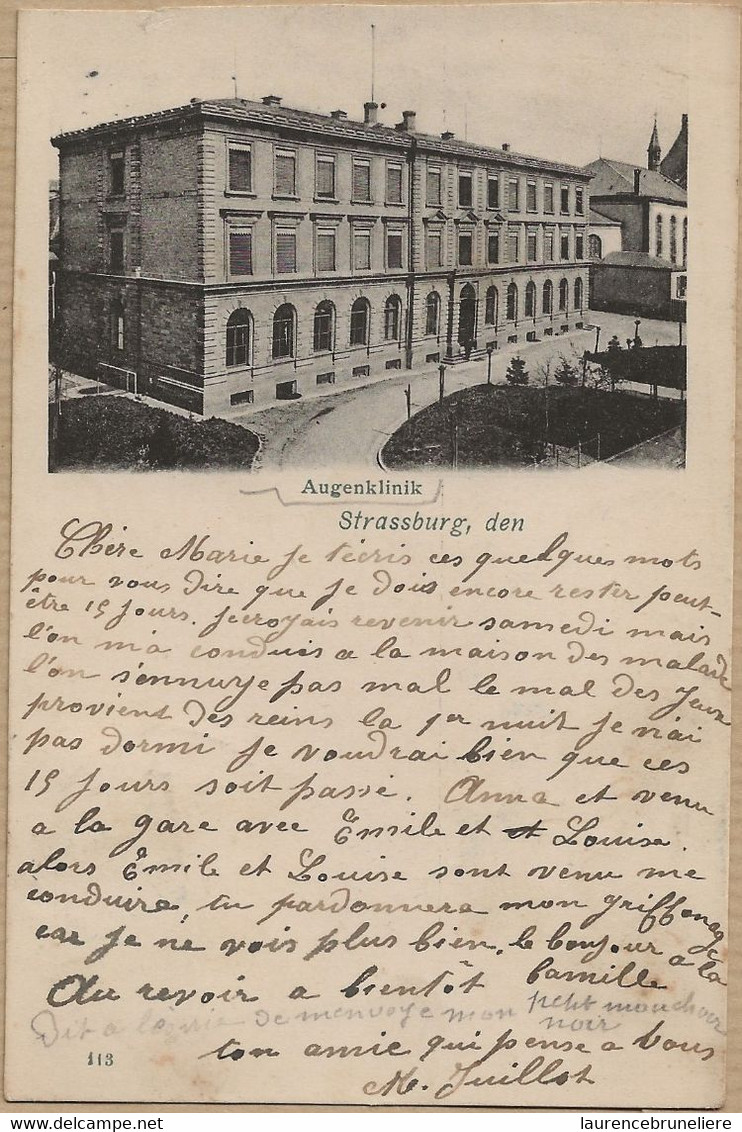 Augenklinik
Strassburg, den
Chère Marie je t'écris ces quelques mots
pour vous dire que je dois encore rester peut-
être 15 jours. je croyais revenir samedi mais
l'on m'a conduis a la maison des malade
l'on s'ennuye pas mal le mal des yeux
provient des reins la 1er nuit je n'ai
pas dormi je voudrai bien que ces
15 jours soit passé. Anna et venu
a la gare avec Emile et Louise.
alors Emile et Louise sont venu me
conduire, tu pardonnera mon griffonage
car je ne vois plus bien, le bonjour a la
famille
Au revoir a bientôt
Dit a de m'envoye mon petit mouchoir
noir
ton amie qui pense a vous
M. Juillot
113
laurencebruneliere